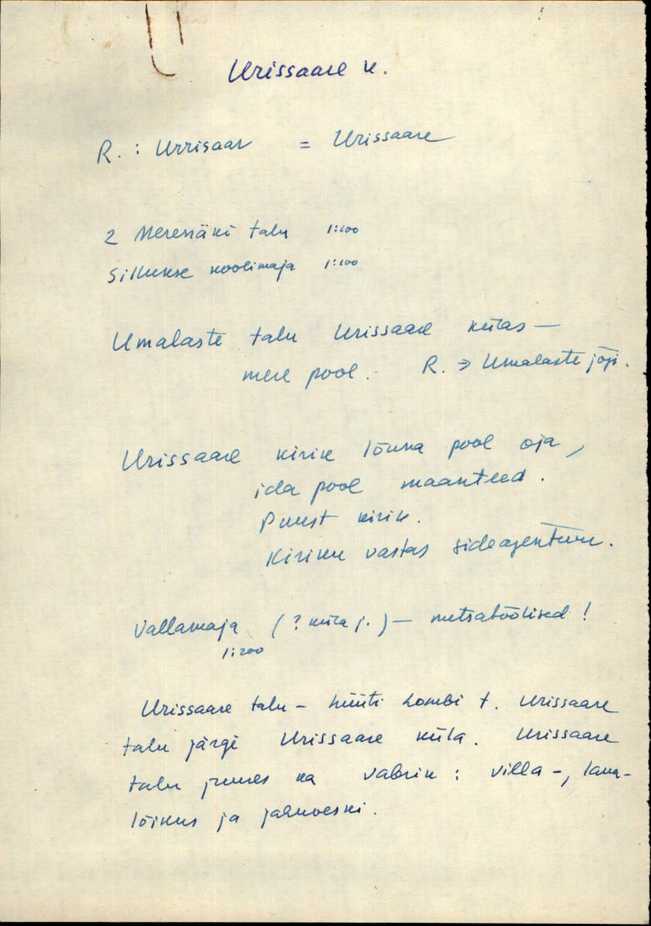 Urissaare k.
R. : Urrisaar = Urissaare
2 Meremäki talu 1:200
Sillukse koolimaja 1:200
Umalaste talu Urissaare külas —
mere pool. R. → Umalaste jõgi.
Urissaare kirik lõuna pool oja,
ida pool maanteed.
Puust kirik.
Kiriku vastas sideagentuur.
Vallamaja (? küla j.) — metsatöölised!
1:200
Urissaare talu – hüüti Lombi t. Urissaare
talu järgi Urissaare küla. Urissaare
talu juures ka vabrik : villa-, laua-
lõikus ja jahuveski.